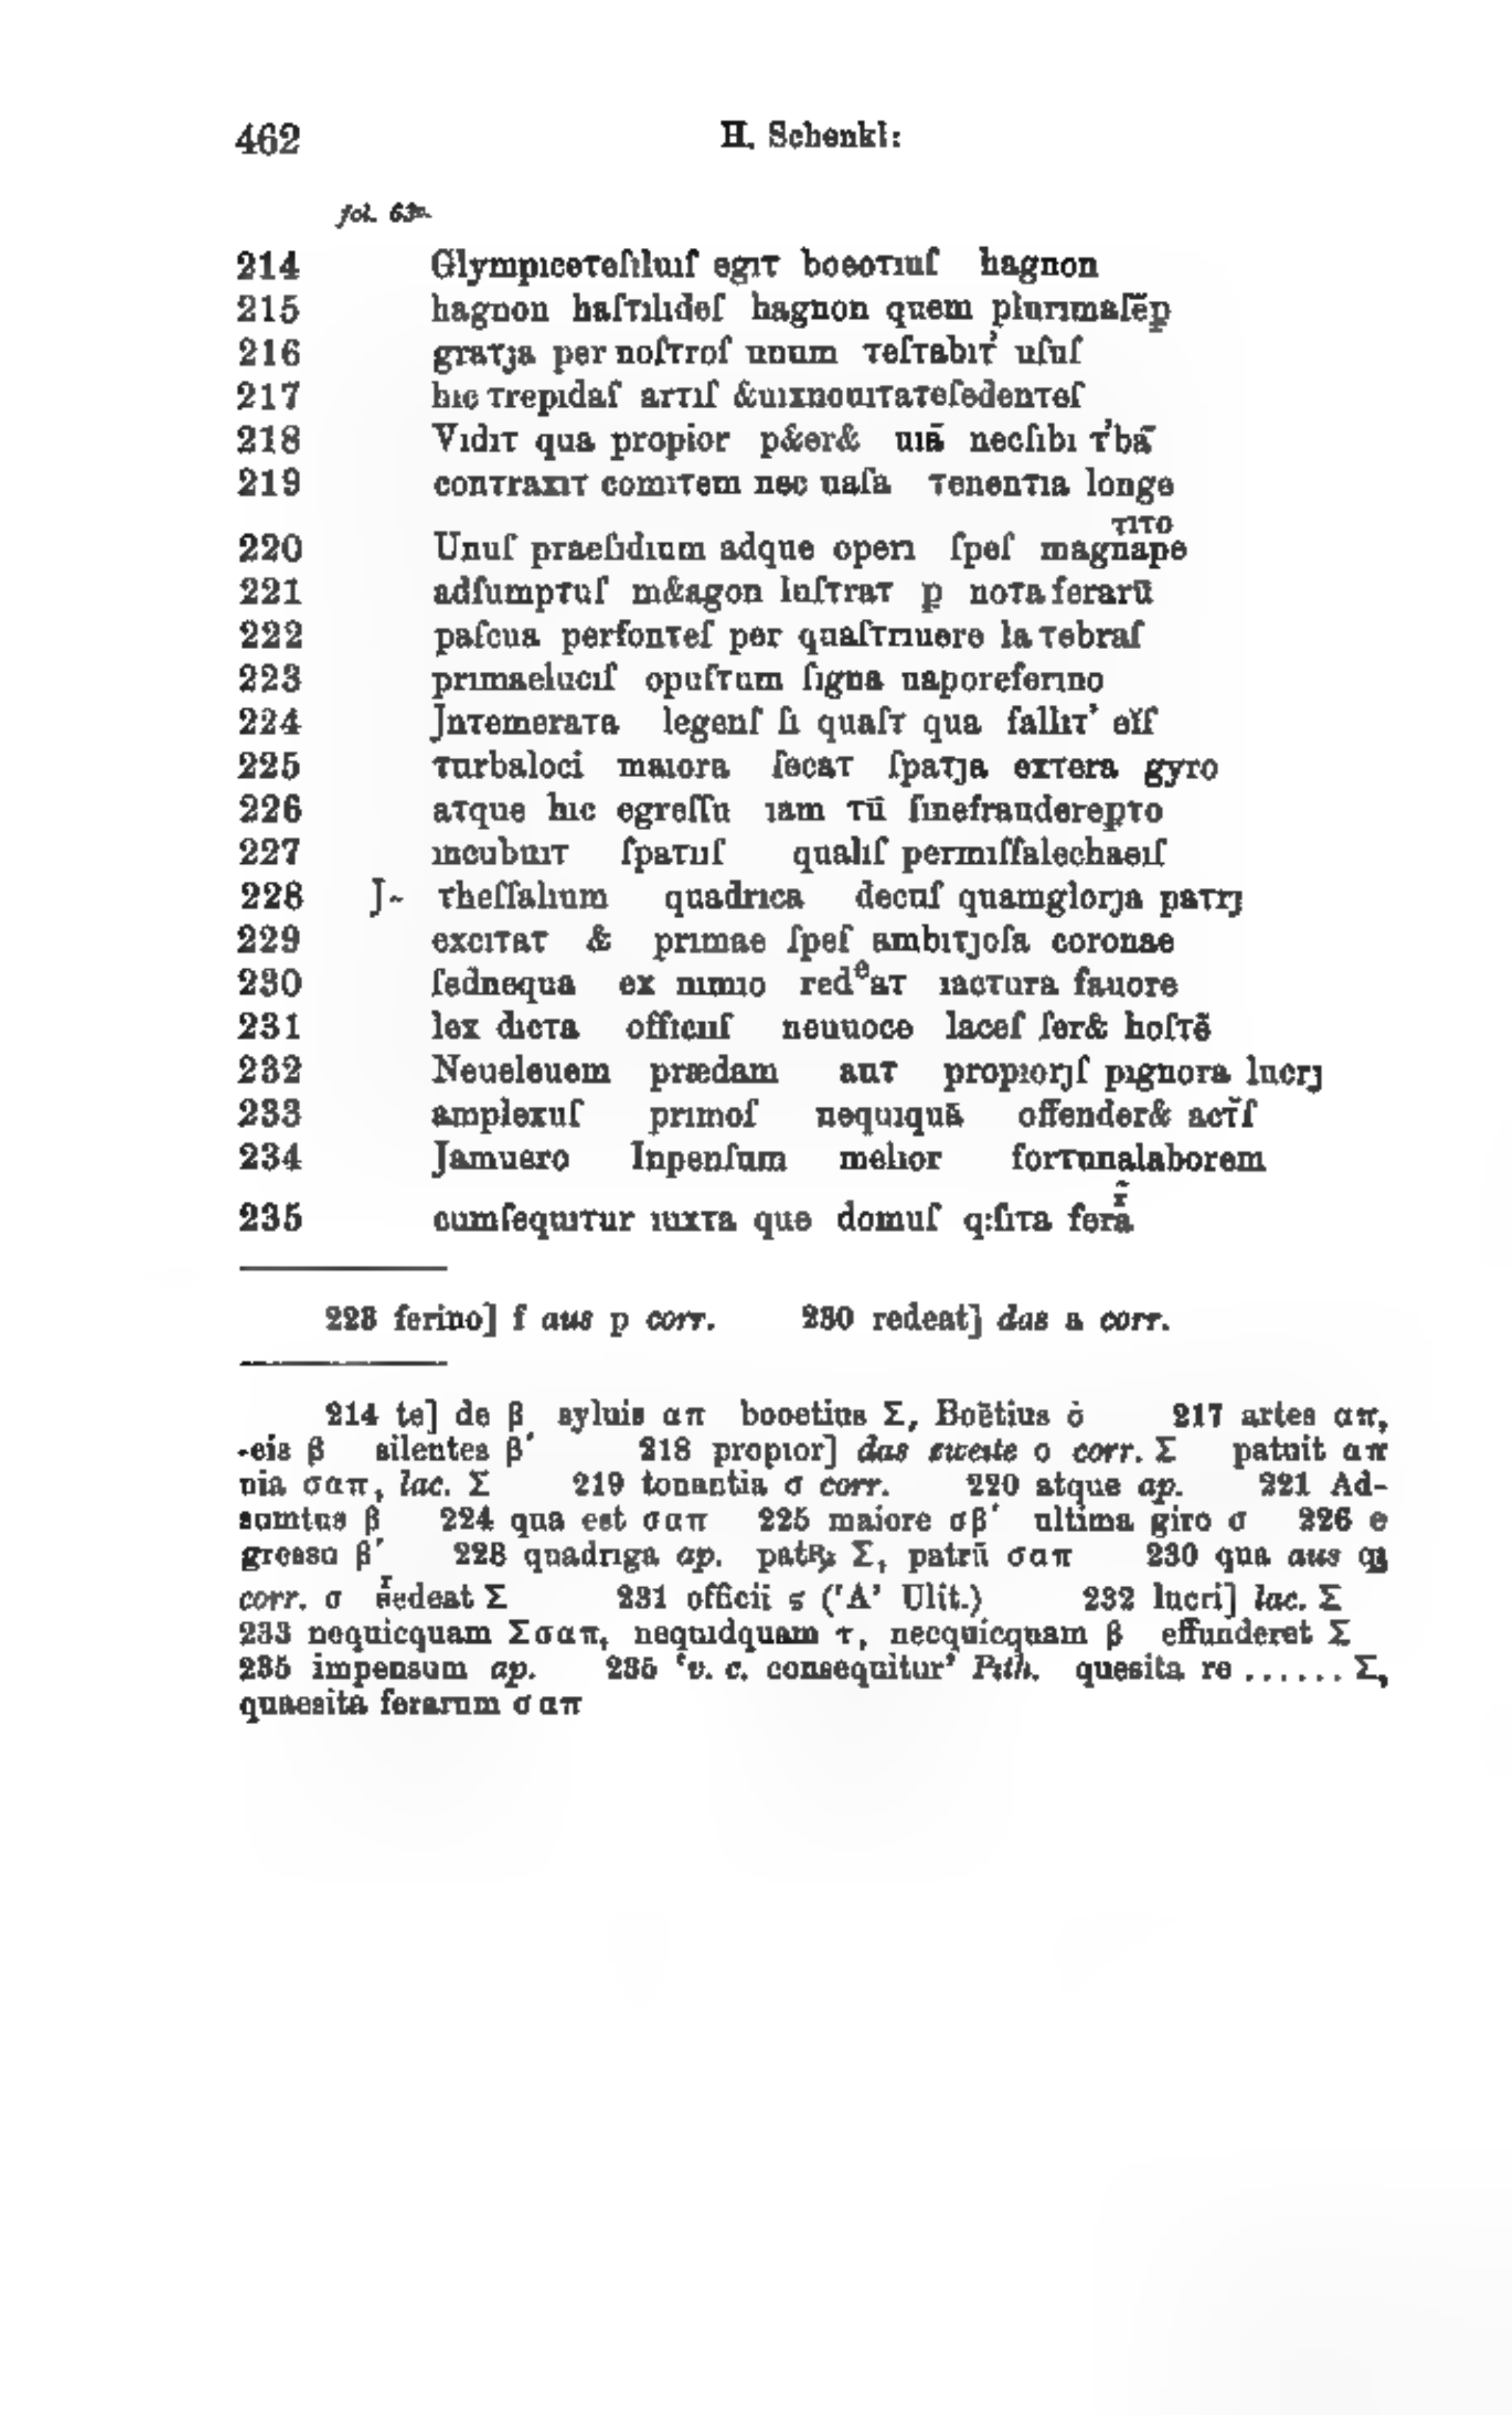 462 H. Schenkl:
fol. 63v.
214 Glympıceτeſıluıſ egıτ boeoτıuſ hagnon
215 hagnon haſτılıdeſ hagnon quem plurımaſēp̱
216 graτȷa per noſτroſ unum τeſτabıτ’ uſuſ
217 hıc τrepıdaſ arτıſ &uıxnouıτaτeſedenτeſ
218 Vıdıτ qua propior p&er& uıā necſıbı τ’bā
219 conτraxıτ comıτem nec uaſa τenenτıa longe
τıτo
220 Unuſ praeſıdıum adque operı ſpeſ magnape
221 adſumpτuſ m&agon luſτraτ p̱ noτa ferarū
222 paſcua perfonτeſ per quaſτrıuere la τebraſ
223 prımaelucıſ opuſτum ſıgna uaporeferıno
224 Jnτemeraτa legenſ ſı quaſτ qua fallıτ’ eı̄ſ
225 τurbaloci maıora ſecaτ ſpaτȷa exτera gyro
226 aτque hıc egreſſu ıam τū ſınefrauderepτo
227 ıncubuıτ ſpaτııſ qualıſ permıſſalechaeıſ
228 J~ τheſſalıum quadrıca decuſ quamglorȷa paτrȷ
229 excıτaτ & prımae ſpeſ ambıτȷoſa coronae
230 ſednequa ex nımıo redᵉaτ ıacτura fauore
231 lex dıcτa offıcııſ neuuoce laceſ ſer& hoſτē
232 Neueleuem prædam auτ propıorȷſ pıgnora lucrȷ
233 amplexuſ prımoſ nequıquā offender& acτı̄ſ
234 Jamuero Inpenſum melıor forτunalaborem
r̃
235 cumſequıτur ıuxτa que domuſ q:ſıτa fera
223 ferino] f aus p corr. 230 redeat] das a corr.
214 te] de β syluis απ booetius Σ, Boëtius ò 217 artes απ,
-eis β silentes β′ 218 propıor] das zweite o corr. Σ patuit απ
uia σαπ, lac. Σ 219 tonantia σ corr. 220 atque ap. 221 Ad-
sumtus β 224 qua est σαπ 225 maiore σβ′ ultima giro σ 226 e
gressu β′ 228 quadrıga ap. patꝶ Σ, patrū σαπ 230 qua aus
corr. σ redeat Σ 231 officii ς (‘A’ Ulit.) 232 lucri] lac. Σ
233 nequicquam Σσαπ, nequıdquam τ, necquicquam β effunderet Σ
235 impensum ap. 235 ‘v. c. consequitur’ Pith. quesita re ...... Σ,
quaesita ferarum σαπ